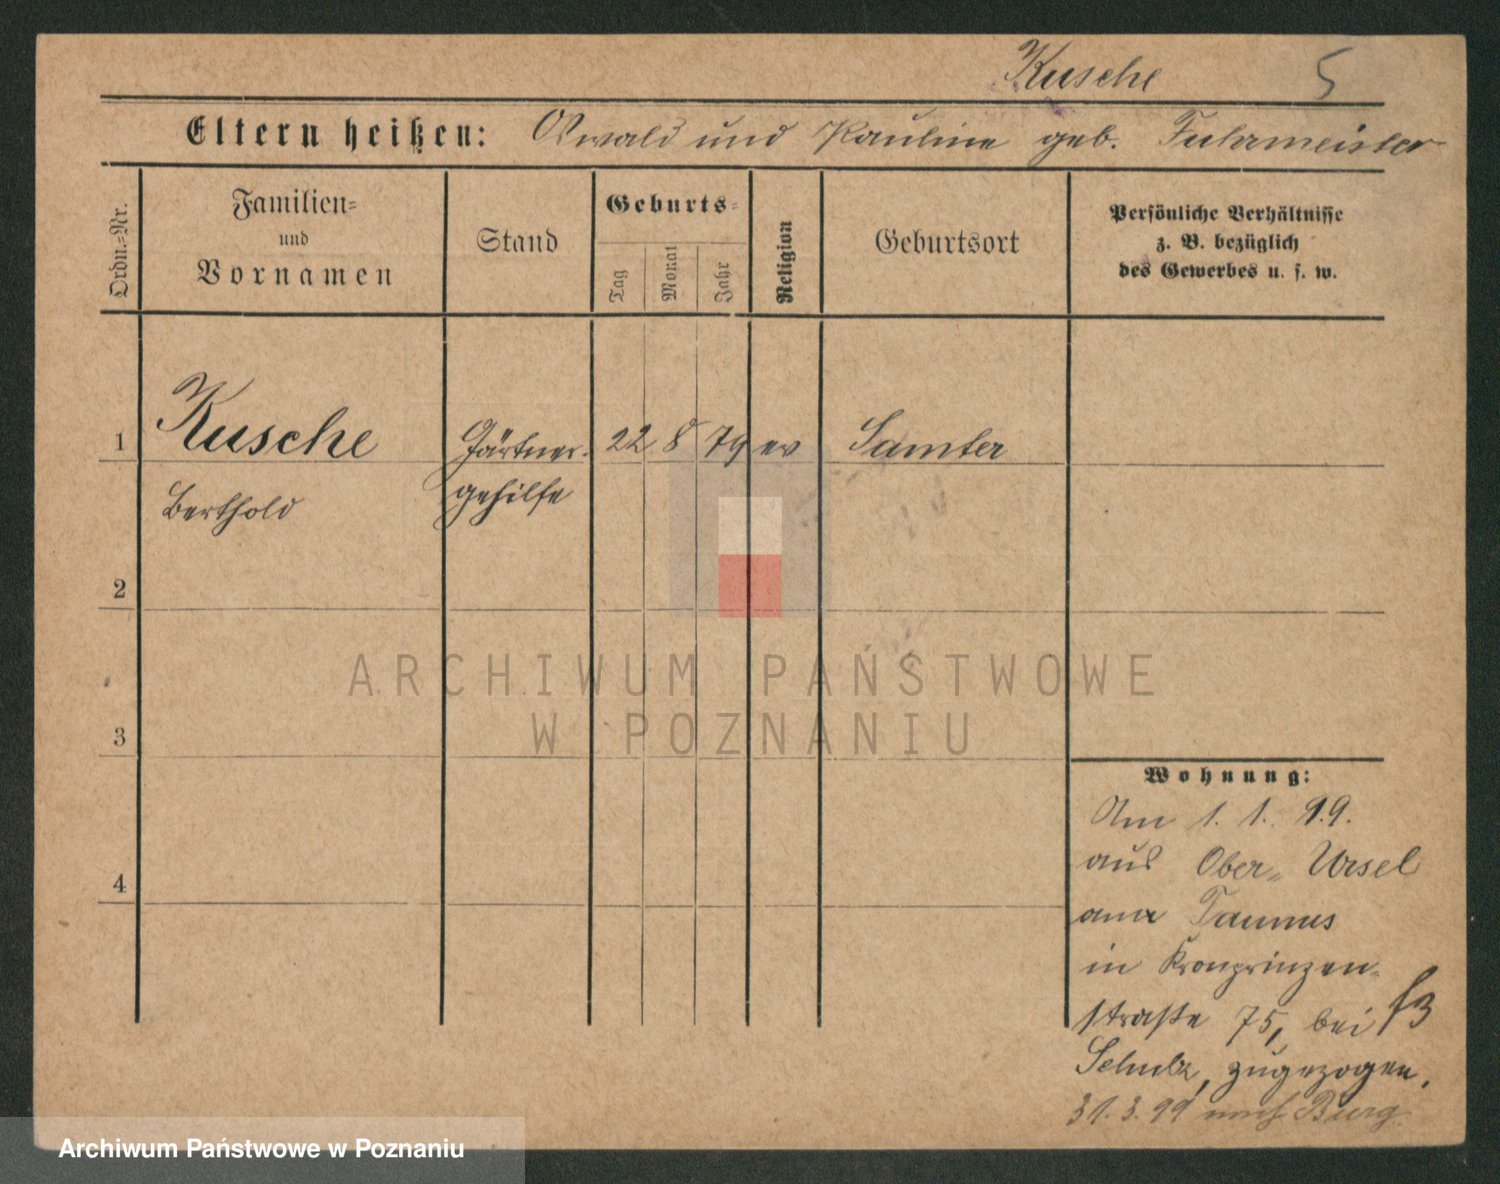 Kusche 5
Eltern heißen: Oswald und Pauline geb. Fuhrmeister
Ordn.=Nr.
Familien=
und
Vornamen
Stand
Geburts=
Tag
Monat
Jahr
Religion
Geburtsort
Persönliche Verhältnisse
z. B. bezüglich
des Gewerbes u. s. w.
1 Kusche Gärtner- 22 8 79 ev Samter
Berthold gehilfe
2
3
4
Wohnung:
Am 1. 1. 99.
aus Ober= Ursel
am Taunus
in Kronprinzen-
straße 75, bei
Schulz, zugezogen.
31.3.99 nach Burg
ARCHIWUM PAŃSTWOWE
W POZNANIU
Archiwum Państwowe w Poznaniu